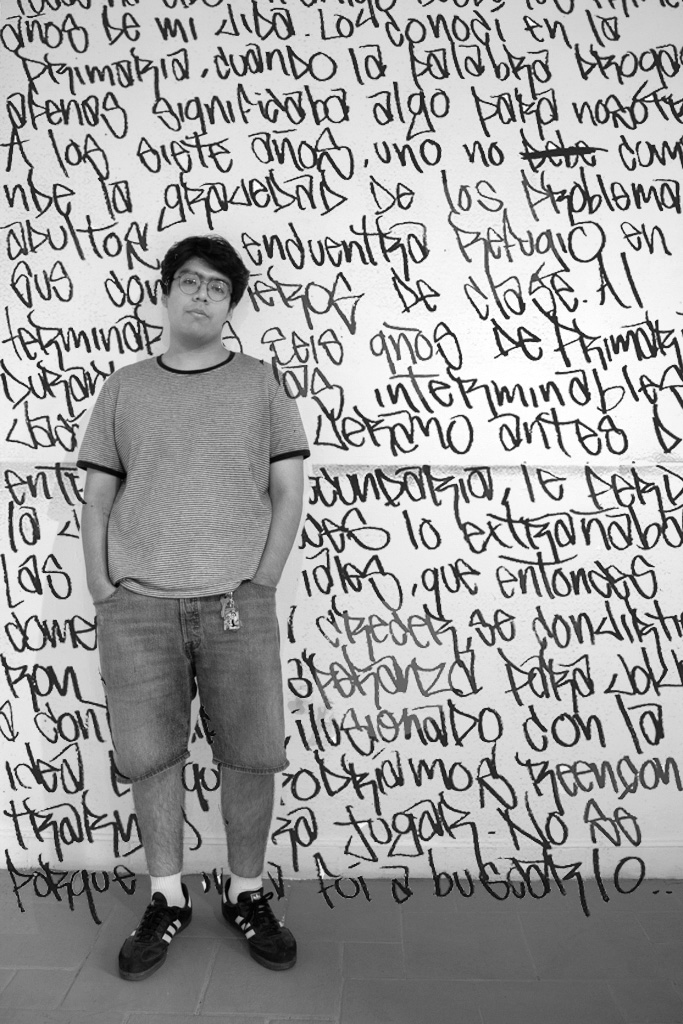 años de mi vida. Lo conocí en la
primaria, cuando la palabra droga
apenas significaba algo para nosotr
A los siete años, uno no debe com
nde la gravedad de los problema
adultos encuentra refugio en
sus com eros de clase. Al
terminar seis años de primari
duran las interminables
vas verano antes d
ent cundaria, le perd
la v es lo extrañaba
Las iales, que entonces
come crecer, se convirti
ron speranza para volv
a con ilusionado con la
idea qu odríamos reencon
trarn ra jugar. No sé
porque n fui a buscarlo..